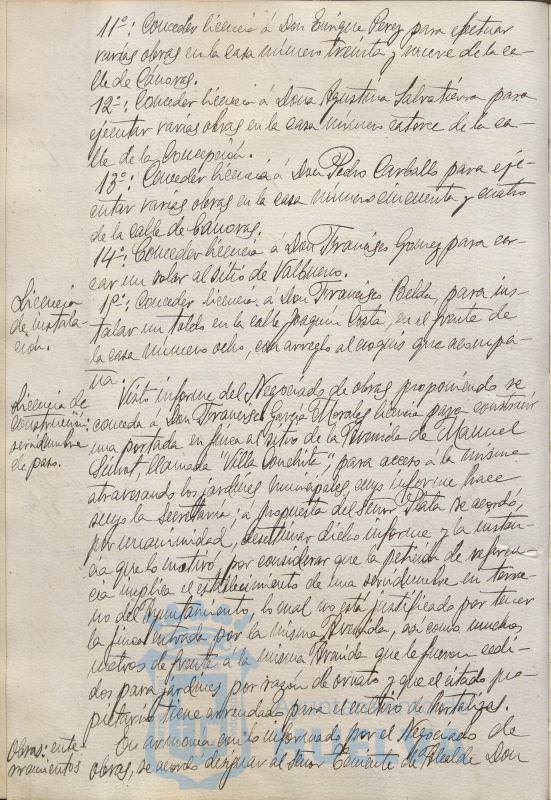 11º: Conceder licencia á Don Enrique Perez para efectuar
varias obras en la casa número treinta y nueve de la ca-
lle de Cánovas.
12º: Conceder licencia á Doña Agustina Salvatierra para
ejecutar varias obras en la casa número catorce de la ca-
lle de la Concepción.
13º: Conceder licencia á Don Pedro Carballo para eje-
cutar varias obras en la casa número cincuenta y cuatro
de la calle de Cánovas.
14º: Conceder licencia á Don Francisco Gomez para cer-
car un solar al sitio de Valbueno.
Licencia
de instala-
ción.
1º: Conceder licencia á Don Francisco Belda, para ins-
talar un toldo en la calle Joaquín Costa, en el frente de
la casa número ocho, con arreglo al croquis que acompa-
ña.
Licencia de
construcción:
servidumbre
de paso.
Visto informe del Negociado de obras proponiendo se
conceda á Don Francisco García Morales licencia para construir
una portada en finca al sitio de la Avenida de Manuel
Siurot, llamada "Villa Conchita", para acceso á la misma
atravesando los jardines municipales, cuyo informe hace
suyo la Secretaría: á propuesta del Señor Plata se acordó,
por unanimidad, desestimar dicho informe y la instan-
cia que lo motivó, por considerar que la petición de referen-
cia implica el establecimiento de una servidumbre en terre-
no del Ayuntamiento, lo cual no está justificado por tener
la finca entrada por la misma Avenida, así como muchos
metros de frente a la misma Avenida que le fueron cedi-
dos para jardines por razón de ornato y que el citado pro-
pietario tiene arrendado para el cultivo de hortalizas.
Obras: ente-
rramientos
En armonía con lo informado por el Negociado de
obras, se acordó designar al Señor Teniente de Alcalde Don